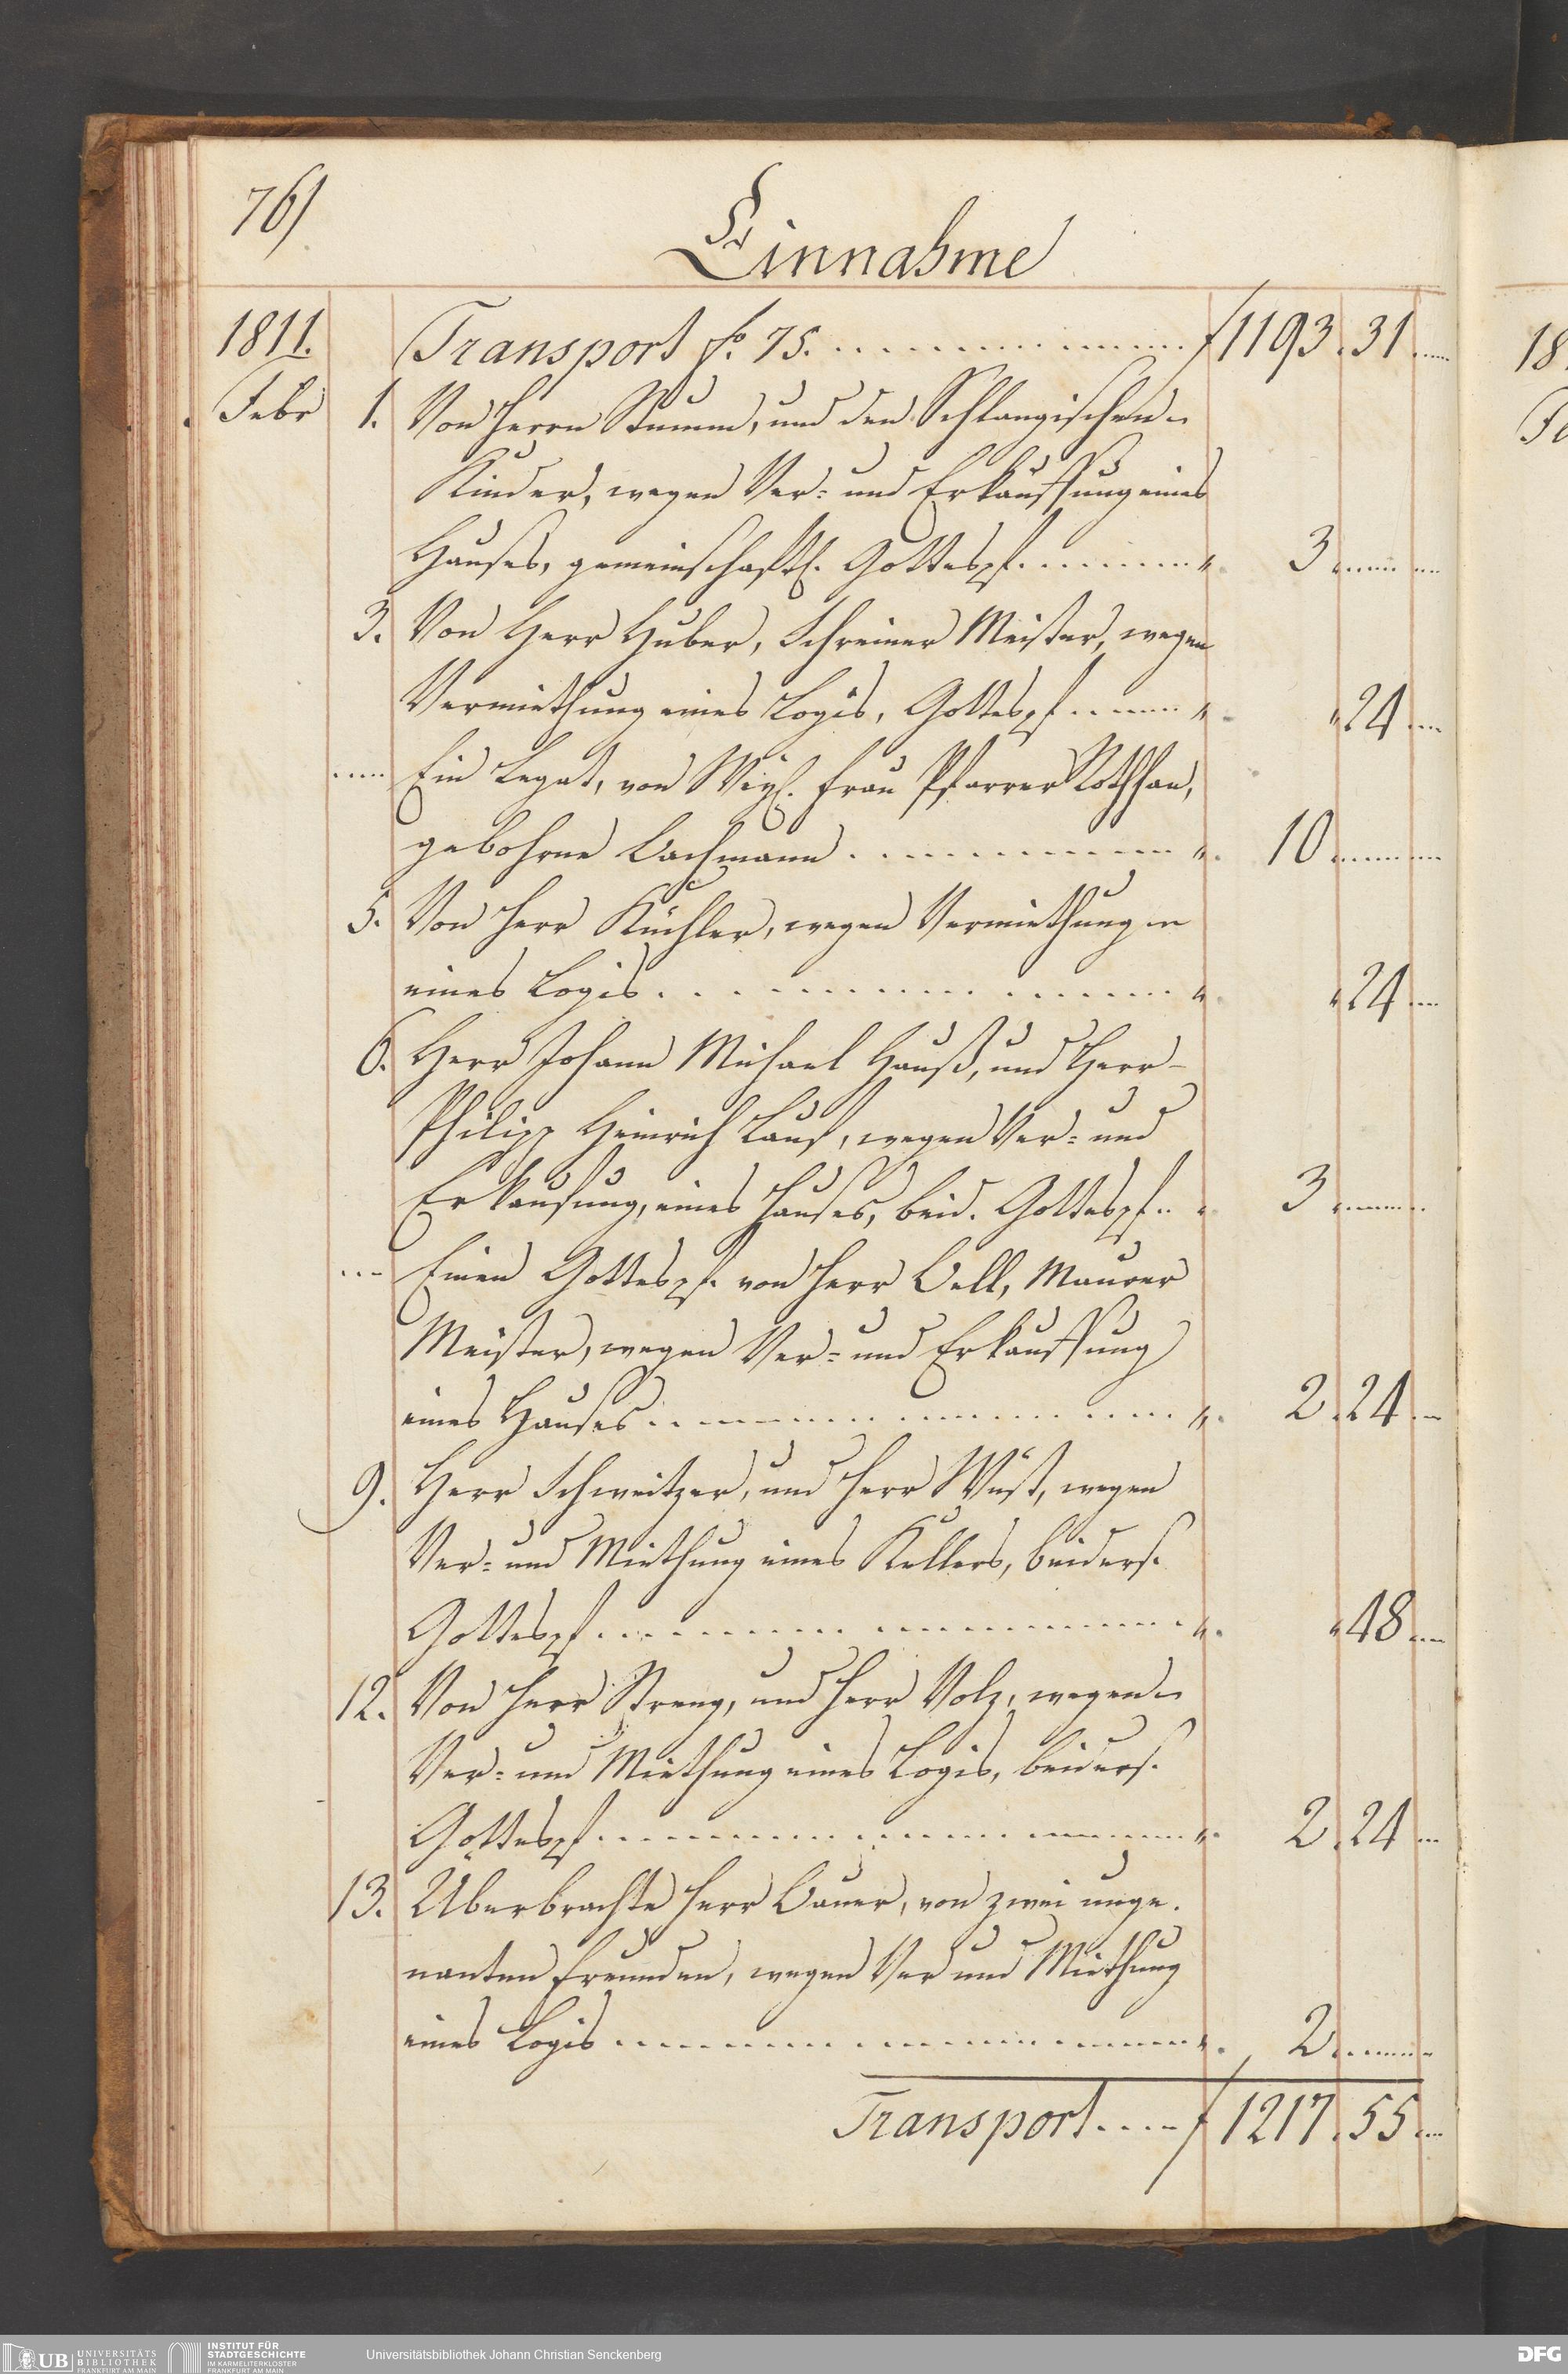 76)
Einnahme
1811. Transport fo. 75. f 1193. 31
Febr 1. Von Herrn Stumm, und den Schlangischen
Kinder, wegen Ver- und Erkauffung eines
Hauses, gemeinschaftl. Gottespf. " 3
3. Von Herr Huber, Schreiner Meister, wegen
Vermiethung eines Logis, Gottespf " " 24
Ein Legat, von Weyl. Frau Pfarrer Rothhan,
gebohrne Bachmann " 10
5. Von Herr Küchler, wegen Vermiethung
eines Logis " " 24
6. Herr Johann Michael Hauß, und Herr
Philipp Heinrich Lauf, wegen Ver- und
Erkaufung, eines Hauses, beid. Gottespf. " 3
Einen Gottespf. von Herr Bell, Maurer
Meister, wegen Ver- und Erkauffung
eines Hauses " 2. 24
9. Herr Schweitzer, und Herr Wüst, wegen
Ver- und Miethung eines Kellers, beiders.
Gottespf " " 48
12. Von Herr Streng, und Herr Volz, wegen
Ver- und Miethung eines Logis, beiders.
Gottespf " 2. 24
13. Überbrachte Herr Bauer, von zwei unge.
nanten Freunden, wegen Ver und Miethung
eines Logis " 2
Transport f 1217. 55
18
UB UNIVERSITÄTS
BIBLIOTHEK
FRANKFURT AM MAIN
INSTITUT FÜR
STADTGESCHICHTE
IM KARMELITERKLOSTER
FRANKFURT AM MAIN
Universitätsbibliothek Johann Christian Senckenberg
DFG